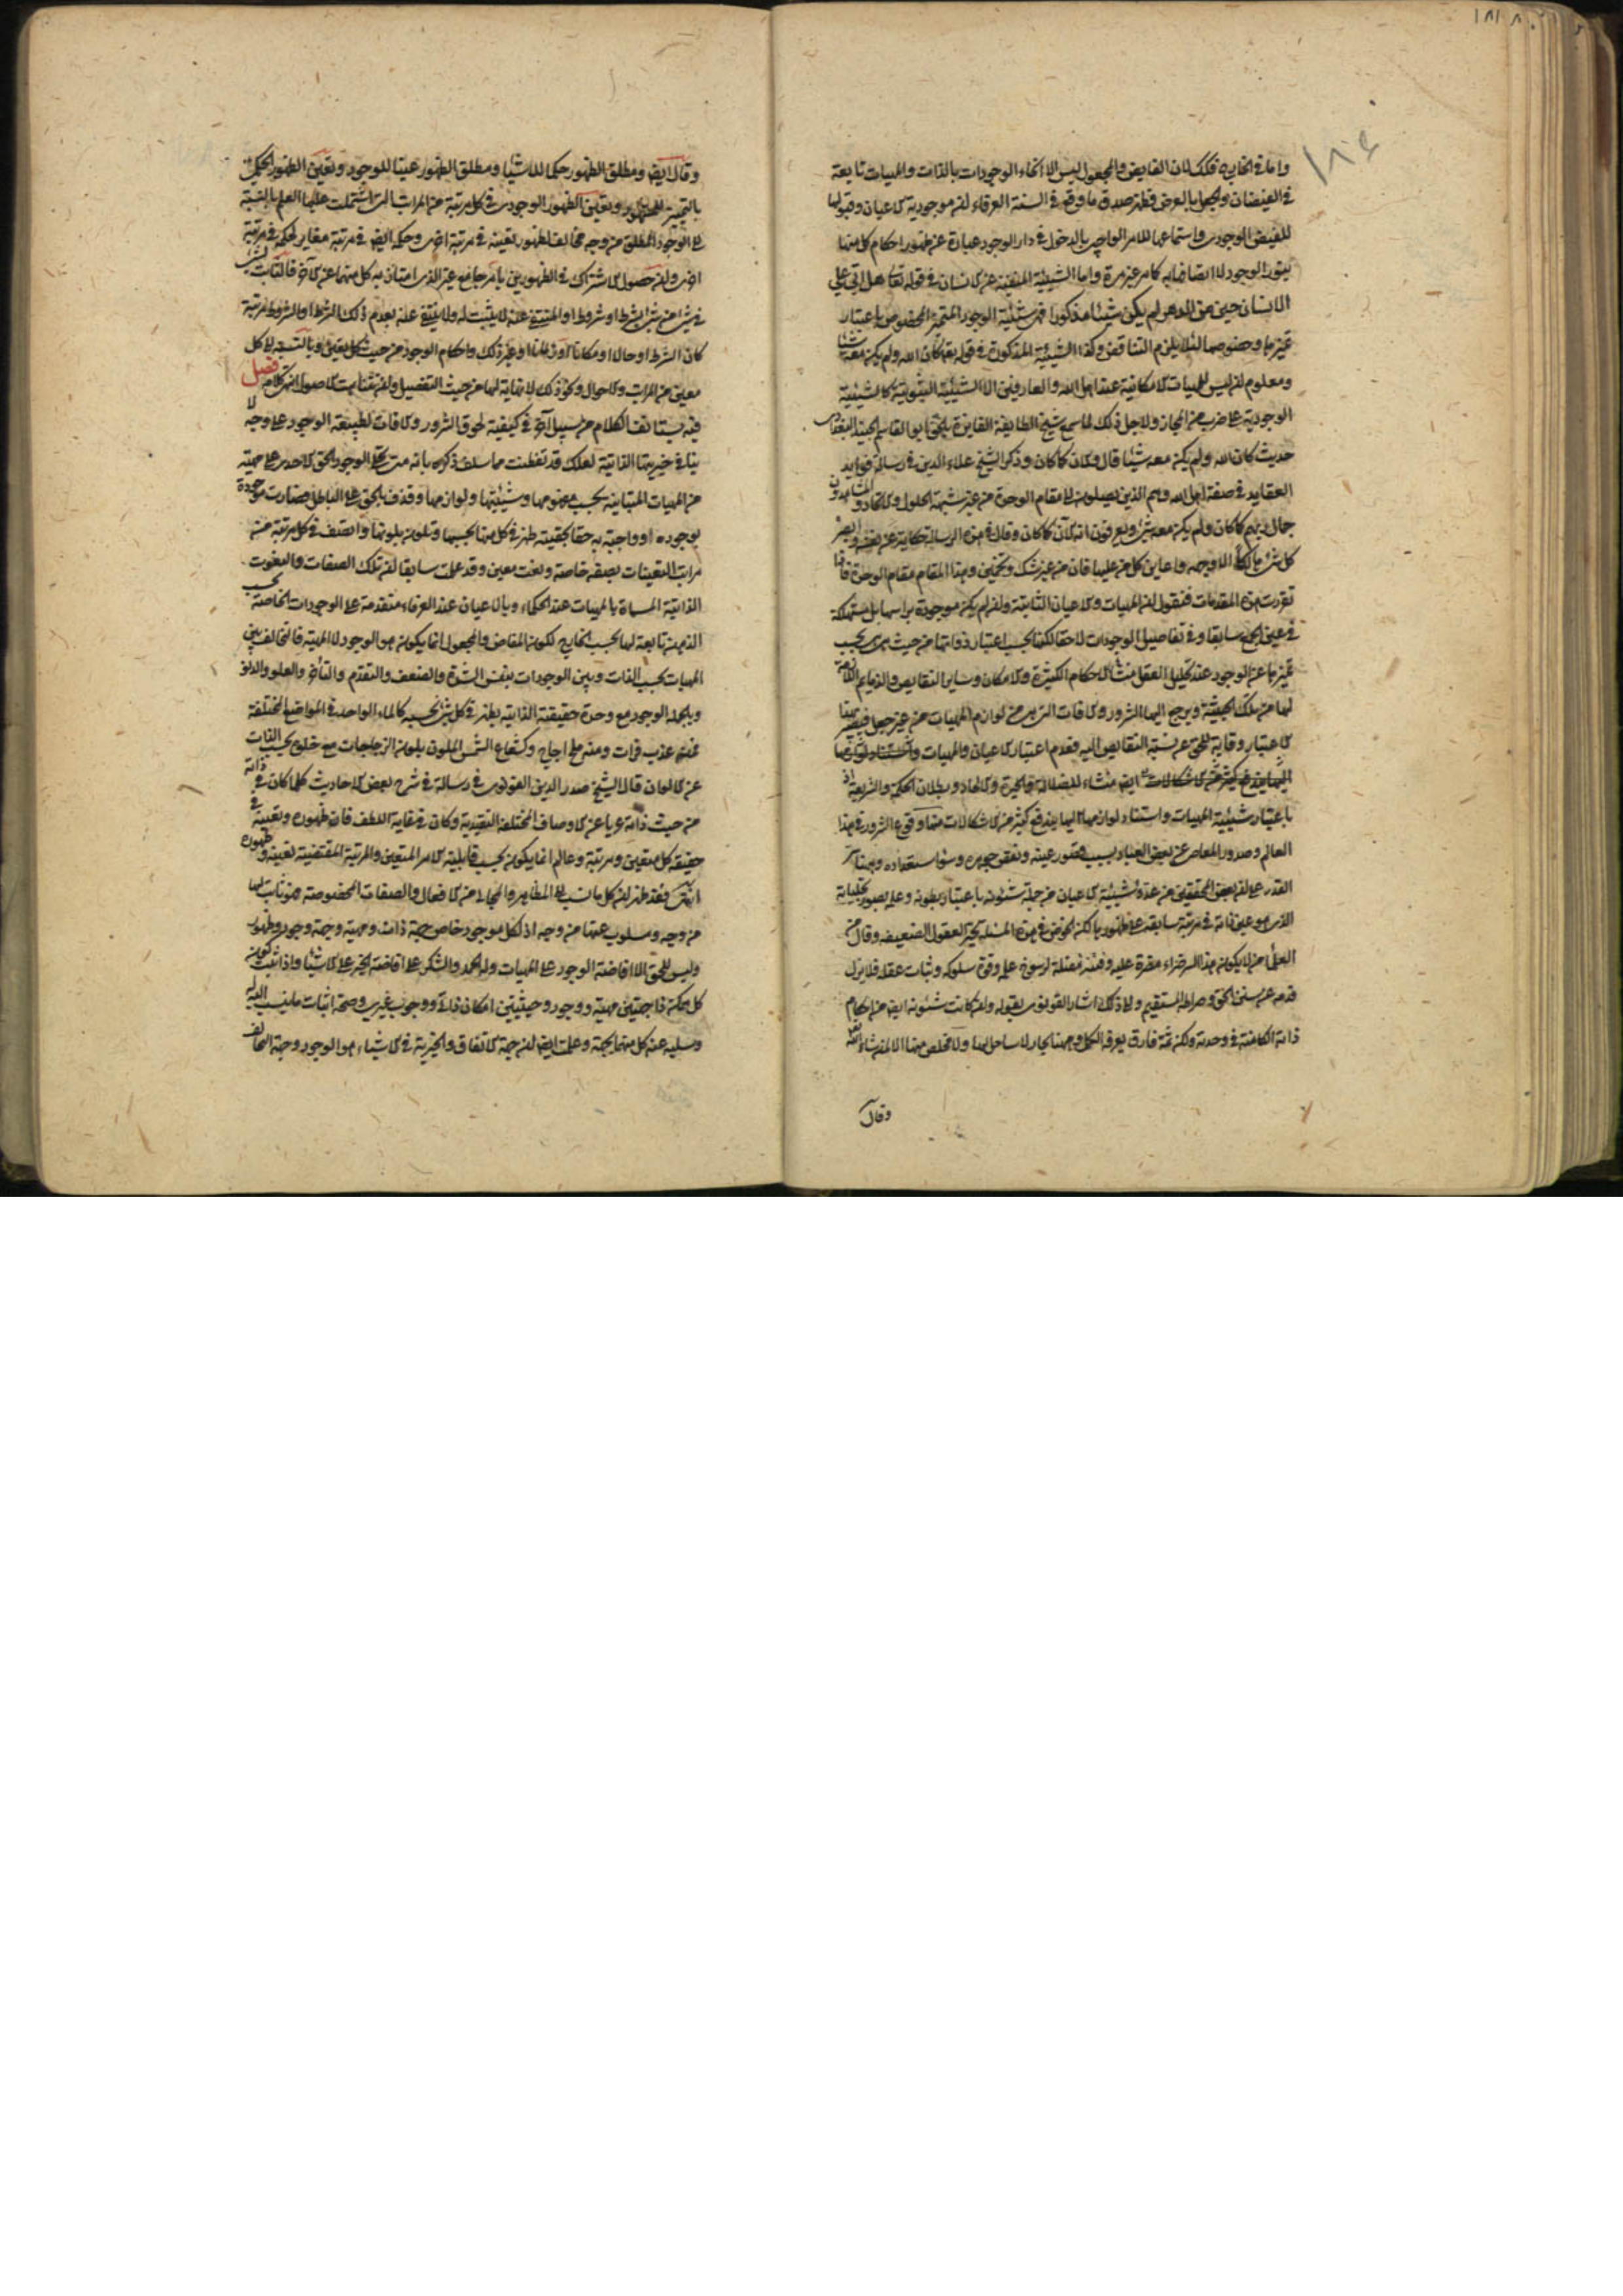 واما في الخارج فكذلك لان الفايض والمجعول ليس الا انحاء الوجودات بالذات والمهيات تابعة
في الفيضان والجعل بالعرض فظهر صدق ما وقع في السنة العرفاء ان موجودية الاعيان وقبولها
للفيض الوجودي واستماعها للامر الواجبي بالدخول في دار الوجود عبارة عن ظهور احكام كل منها
بنور الوجود لا اتصافها به كما مر غير مرة واما الشيئية المنفية عن الانسان في قوله تعالى هل اتى على
الانسان حين من الدهر لم يكن شيئا مذكورا فهي شيئية الوجود المتميز المخصوص باعتبار
تميزها وخصوصها لئلا يلزم التناقض وكذا الشيئية المذكورة في قوله كان الله ولم يكن معه شيئا
ومعلوم ان ليس للمهيات الامكانية عند اهل الله والعارفين الا الشيئية الثبوتية لا الشيئية
الوجودية على ضرب من المجاز ولاجل ذلك لما سمع شيخ الطايفة الفايزة بالحق ابو القاسم الجنيد البغدادي
حديث كان الله ولم يكن معه شيئا قال والان كما كان وذكر الشيخ علاء الدين في رسالة فوايد
العقايد في صفة اهل الله وهم الذين يصلون الى مقام الوحدة من غير شبهة الحلول والاتحاد والمشاهدون
جمال ربهم كما كان ولم يكن معه شئ ويعرفون انه الآن كما كان وقال في هذه الرسالة حكاية عن نفسه وابصر
كل شئ هالكا الا وجهه واعاين كل من عليها فان من غير شك وتخمين وهذا المقام مقام الوحدة فاذا
تقررت هذه المقدمات فنقول ان المهيات والاعيان الثابتة وان لم يكن موجودة براسها بل مستهلكة
في عين الجمع سابقا وفي تفاصيل الوجودات لاحقا لكنها بحسب اعتبار ذواتها من حيث هي هي بحسب
تميزها عن الوجود عند تحليل العقل منشا الاحكام الكثيرة والامكان وساير النقايص والذمايم اللازمة
لها من تلك الحيثية ويرجع اليها الشرور والافات التي هي من لوازم المهيات من غير جعل فيصير بهذا
الاعتبار وقاية للحق عن نسبة النقايص اليه فعدم اعتبار الاعيان والمهيات
ايضا منشاء للضلالة والحيرة والالحاد وبطلان الحكمة والشريعة اذ
باعتبار شيئية المهيات واستناد لوازمها اليها يندفع كثير من الاشكالات منها وقوع الشرور في هذا
العالم وصدور المعاصي عن بعض العباد بسبب قصور عينه ونقص جوهره وسوء استعداده وهذا سر
القدر على ان بعض المحققين من عدوا شيئية الاعيان من جملة شئونه باعتبار بطونه وعلمه بصور تجلياته
الذي هو عين ذاته في مرتبة سابقة على ظهورها لكن الخوض في هذه المسئلة يحير العقول الضعيفة وقل من
العلماء من لا يكون هذا السر ضراء مضرة عليه وفتنة مضلة لرسوخ علمه وقوة سلوكه وثبات عقله فلا يزل
قدمه عن سنن الحق وصراط المستقيم والى ذلك اشار القونوي بقوله وان كانت شئونه ايضا من احكام
ذاته الكامنة في وحدته ولكن ثمة فارق يعرفه الكمل وههنا بحار لا ساحل لها ولا مخلص منها الا لمن شاء الله
وقال
وقال ايضا ومطلق الظهور حكما للاشيا ومطلق الظهور عينا للوجود وتعين الظهور الحكمي
بالتميز المشهود وتعين الظهور الوجودي في كل مرتبة من المراتب التي اشتملت عليها العلم بالنسبة
الى الوجود المطلق من وجه مخالف لظهور تعينه في مرتبة اخرى وحكمه ايضا في مرتبة مغاير لحكمه في مرتبة
اخرى وان حصول الاشتراك في الظهورين بامر جامع غير الذي امتاز به كل منهما عن الآخر فالثابت لشئ
في شئ من شئ بشرط او شروط او المنتفي عنه لا يثبت له ولا ينتفي عنه بعدم ذلك الشرط او الشروط مرتبة
كان الشرط او حالا او مكانا او زمانا او غير ذلك واحكام الوجود من حيث كل تعين وبالنسبة الى كل
معين من المراتب والاحوال ونحو ذلك لا نهاية لها من حيث التفصيل وان تناهت الاصول انتهى كلامه فصل
فيه يستانف الكلام من سبيل آخر في كيفية لحوق الشرور والافات لطبيعة الوجود على وجه لا
ينافي خيريتها الذاتية لعلك قد تفطنت مما سلف ذكره بانه متى تجلى الوجود الحق الاحدي على مهية
من المهيات المتباينة بحسب مفهومها وشيئيتها ولوازمها وقذف بالحق على الباطل فصارت موجودة
بوجوده او واجبة به حقا بحقيته ظهر في كل منها بحسبها وتلون بلونها واتصف في كل مرتبة من
مراتب التعينات بصفة خاصة ونعت معين وقد علمت سابقا ان تلك الصفات والنعوت
الذاتية المسماة بالمهيات عند الحكماء وبالاعيان عند العرفاء متقدمة على الوجودات الخاصة بحسب
الذهن تابعة لها بحسب الخارج لكون المفاض والمجعول انما يكون هو الوجود لا المهية فالتخالف بين
المهيات بحسب الذات وبين الوجودات بنفس الشدة والضعف والتقدم والتأخر والعلو والدنو
وبالجملة الوجود مع وحدة حقيقته الذاتية يظهر في كل شئ بحسبه كالماء الواحد في المواضع المختلفة
فمنه عذب فرات ومنه ملح اجاج وكشعاع الشمس الملون بلون الزجاجات مع خلوه بحسب الذات
عن الالوان قال الشيخ صدر الدين القونوي في رسالة في شرح بعض الاحاديث كلما كان في ذاته
من حيث ذاته عريا عن الاوصاف المختلفة التقييدية وكان في غاية اللطف فان ظهوره وتعينه في
حقيقة كل متعين ومرتبة وعالم انما يكون بحسب قابلية الامر المتعين والمرتبة المقتضية لتعينه وظهوره
انتهى فقد ظهر ان كل ما نسب الى المظاهر والمجالي من الافعال والصفات المخصوصة فهو ثابت لها
من وجه ومسلوب عنها من وجه اذ لكل موجود خاص جهة ذات ومهية وجهة وجود وظهور
وليس للحق الا افاضة الوجود على المهيات وله الحمد والشكر على افاضة الخير على الاشيا واذا ثبت كون
كل ممكن ذا جهتين مهية ووجود وحيثيتين امكان ذاتي ووجوب غيري وصحة اثبات ما ينسب اليه له
وسلبه عنه كل منهما بجهة وعلمت ايضا ان جهة الاتفاق والخيرية في الاشياء هو الوجود وجهة التخالف